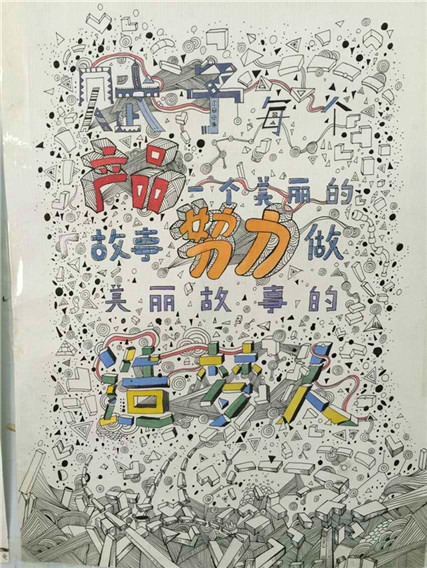 赋予每个
产品一个美丽的
故事努力做
美丽故事的
造梦人